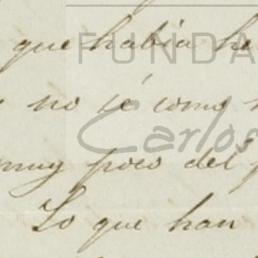 que había he
FUNDA
no sé como
Carlos
muy poco del
Lo que han